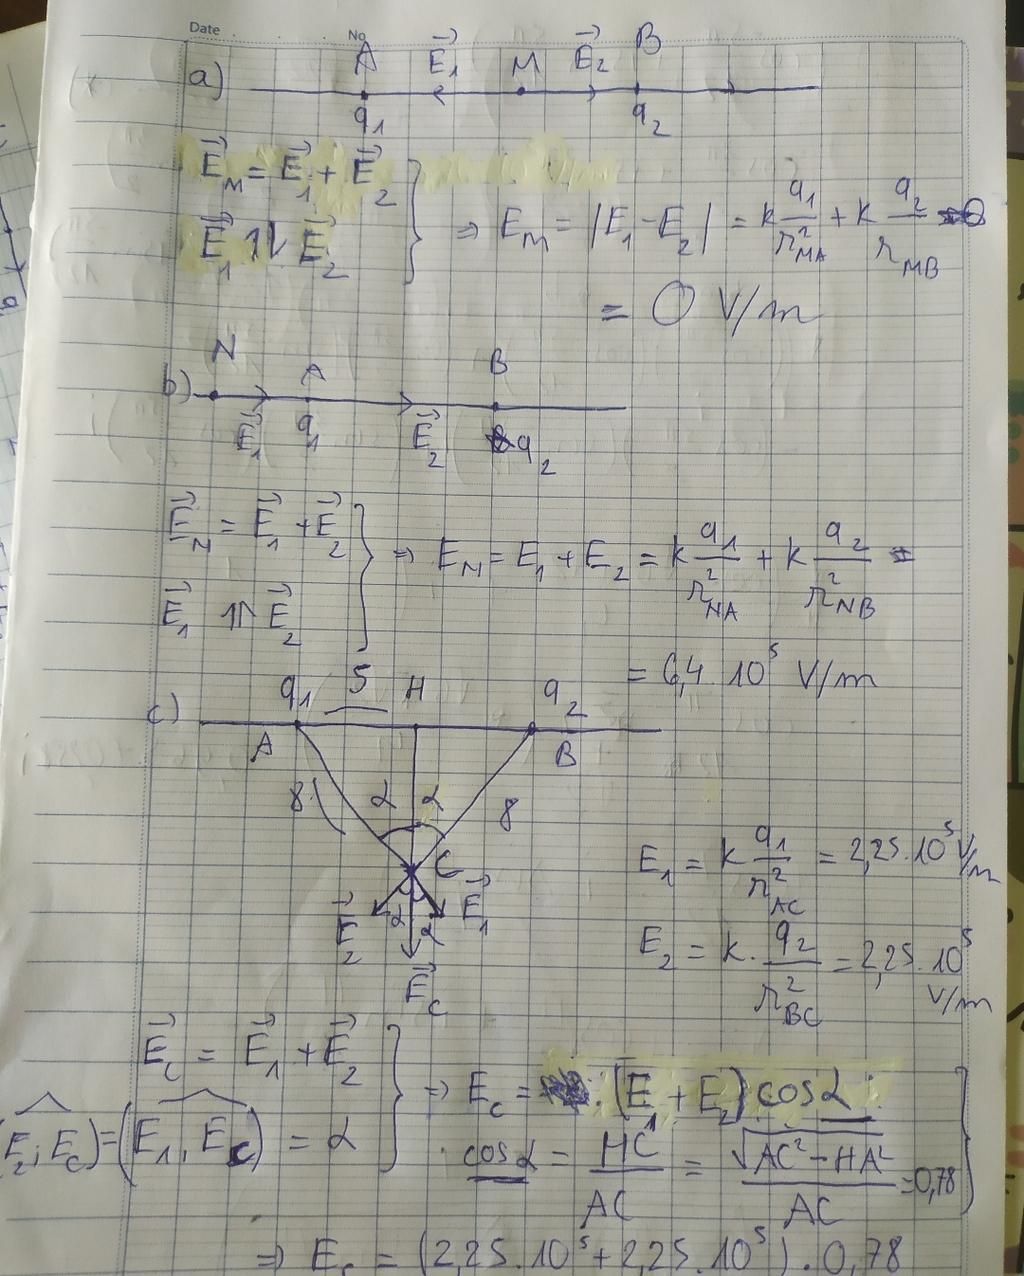 Date No
A E⃗₁ M E⃗₂ B
a)
q₁ q₂
E⃗_M = E⃗₁ + E⃗₂
E⃗₁ ↑↓ E⃗₂
⇒ E_M = |E₁ - E₂| = k q₁/r²_MA + k q₂/r_MB
= 0 V/m
N A B
b)
E⃗₁ q₁ E⃗₂ q₂
E⃗_N = E⃗₁ + E⃗₂
E⃗₁ ↑↑ E⃗₂
⇒ E_N = E₁ + E₂ = k q₁/r²_NA + k q₂/r²_NB =
= 6,4 . 10⁵ V/m
q₁ 5 H q₂
c)
A B
8 α α 8
C
E₁ = k q₁/r²_AC = 2,25 . 10⁵ V/m
α α
E⃗₂ E⃗₁
E⃗_C
E₂ = k . q₂/r²_BC = 2,25 . 10⁵ V/m
E⃗_C = E⃗₁ + E⃗₂
(E₂; E_C) = (E₁, E_C) = α
⇒ E_C = (E₁ + E₂) cos α
cos α = HC/AC = √(AC² - HA²)/AC = 0,78
⇒ E_C = (2,25 . 10⁵ + 2,25 . 10⁵) . 0,78